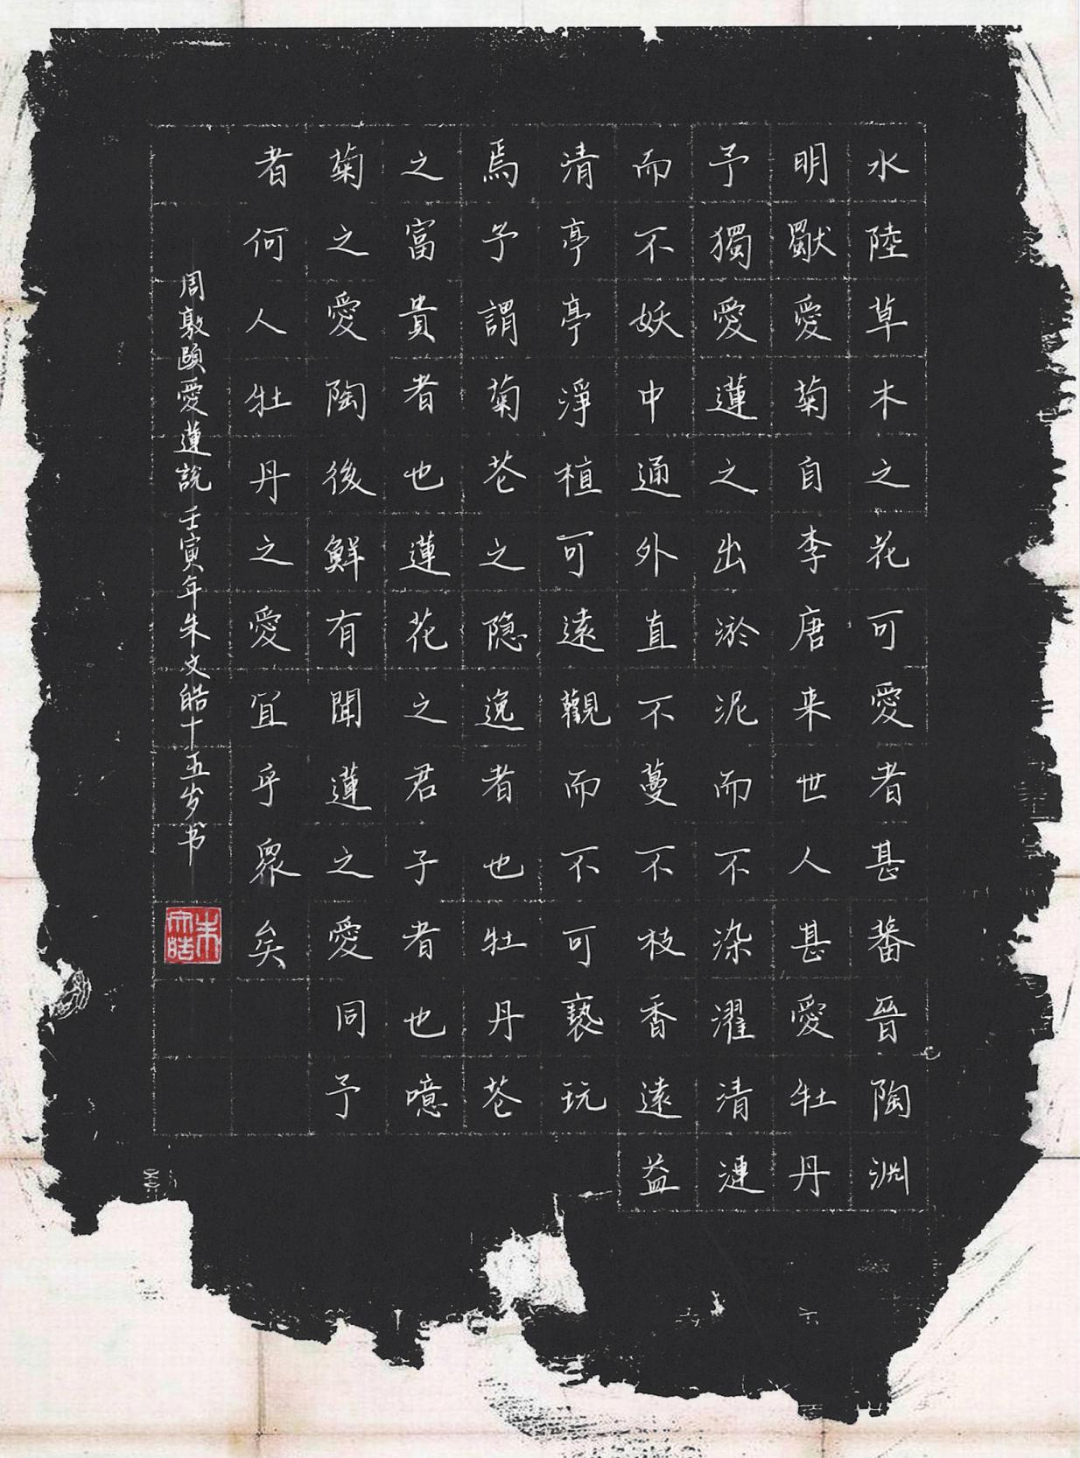 水陸草木之花可愛者甚蕃晉陶淵
明獸愛菊自李唐来世人甚愛牡丹
予獨愛蓮之出淤泥而不染濯清漣
而不妖中通外直不蔓不枝香遠益
清亭亭淨植可遠觀而不可褻玩
焉予謂菊芲之隐逸者也牡丹芲
之富貴者也蓮花之君子者也噫
菊之愛陶後鮮有聞蓮之愛同予
者何人牡丹之愛宜乎衆矣
周敦頤愛蓮說壬寅年朱文皓十五岁书
朱文皓